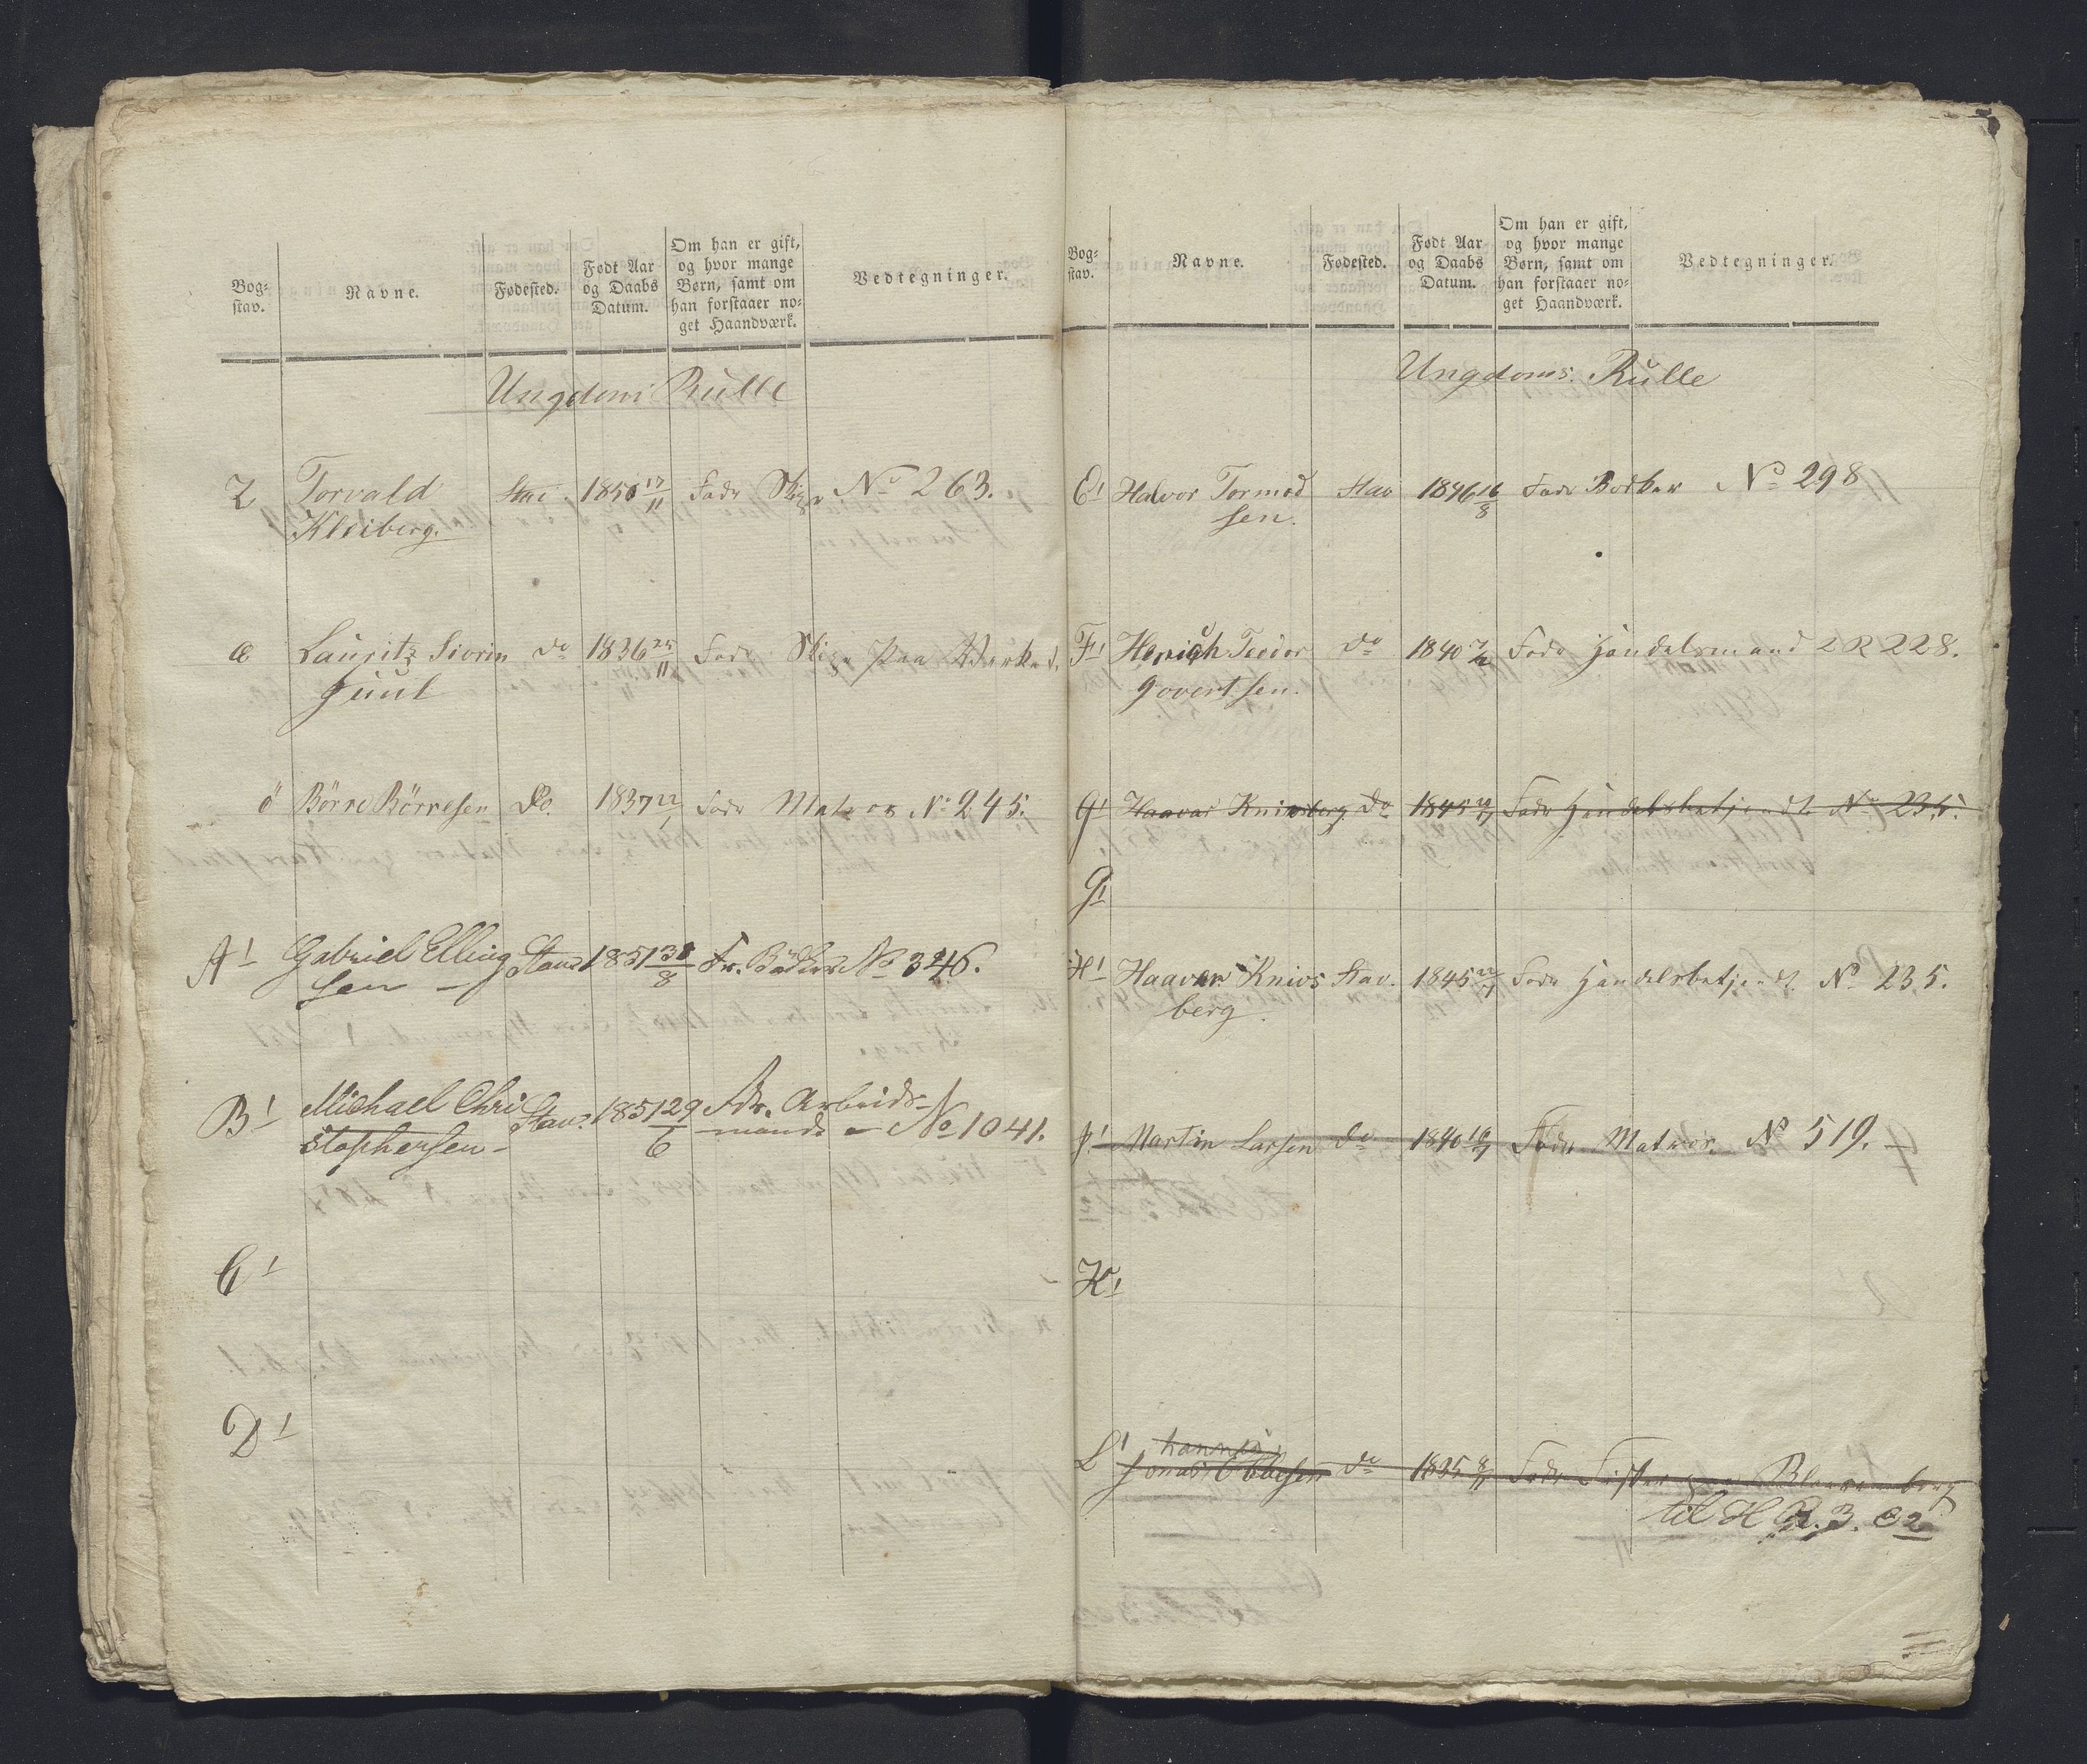 Bog-
stav.
Navne.
Fødested.
Født Aar
og Daabs
Datum.
Om han er gift,
og hvor mange
Børn, samt om
han forstaaer no-
get Haandværk.
Vedtegninger.
Ungdoms Rulle
Z Torvald Stav 1850 17/11 Fadr No 263.
Kleiberg.
æ Lauritz Sivrin do 1836 25/11 Fadr paa
Juul
ö Börre Börresen Do. 1837 Fadr Matros No 245.
A1 Gabriel Elling Stav. 1851 30/8 Fr. Bödker No 346.
sen
B1 Michael Chri Stav. 1851 29/6 Fdr. Arbeids-
stophersen - mand - No 1041.
C1
D1
Bog-
stav.
Navne.
Fødested.
Født Aar
og Daabs
Datum.
Om han er gift,
og hvor mange
Børn, samt om
han forstaaer no-
get Haandværk.
Vedtegninger.
Ungdoms Rulle
E1 Halvor Tormod Stav 1846 16/8 Fadr Bödker No 298
sen.
F1 Henrich Teodor do 1840 Fadr Handelsmand 2 R 228.
Govertsen.
G1 Haavar Knivsberg do 1845 Fadr Handelsbetjendt No 235.
G1
H1 Haavar Knivs Stav. 1845 Fadr Handelsbetjendt No 235.
berg
Martin Larsen do 1840 Fadr Matros. No 519.
K1
hannes
L1 Jonas do 1835 Fadr Fisker
til H R. 3.